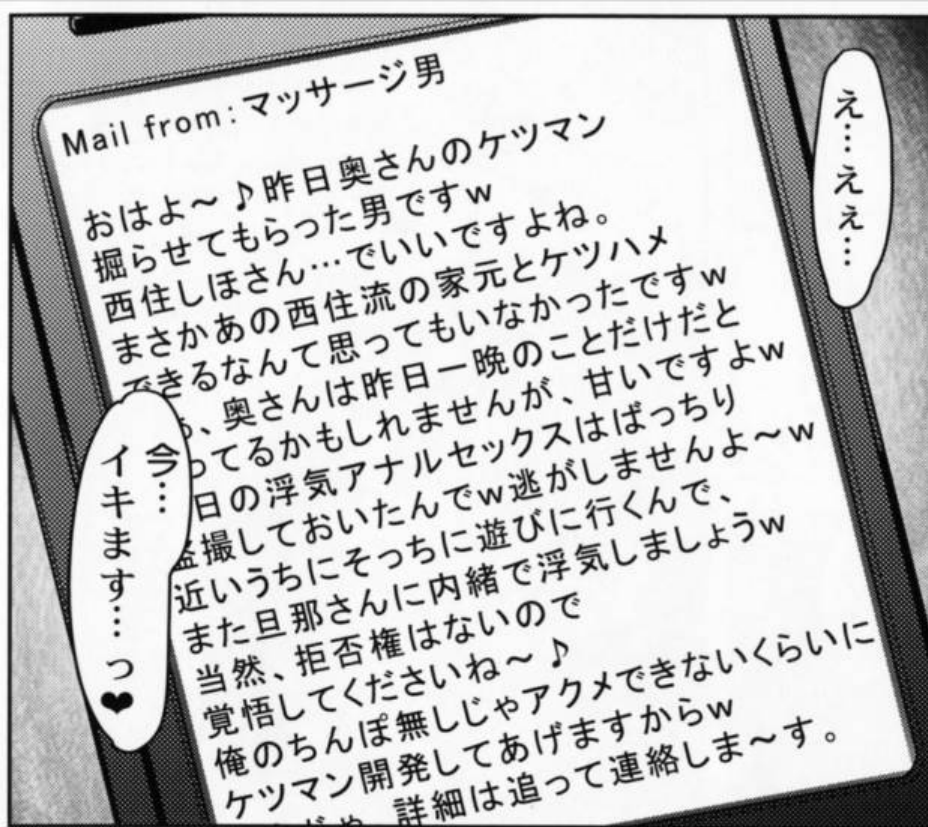 え…えぇ…
Mail from:マッサージ男
おはよ～♪昨日奥さんのケツマン
掘らせてもらった男ですw
西住しほさん…でいいですよね。
まさかあの西住流の家元とケツハメ
できるなんて思ってもいなかったですw
、奥さんは昨日一晩のことだけだと
ってるかもしれませんが、甘いですよw
日の浮気アナルセックスはばっちり
盗撮しておいたんでw逃がしませんよ～w
近いうちにそっちに遊びに行くんで、
また旦那さんに内緒で浮気しましょうw
当然、拒否権はないので
覚悟してくださいね～♪
俺のちんぽ無しじゃアクメできないくらいに
ケツマン開発してあげますからw
詳細は追って連絡しま～す。
今…
イキます…っ♥